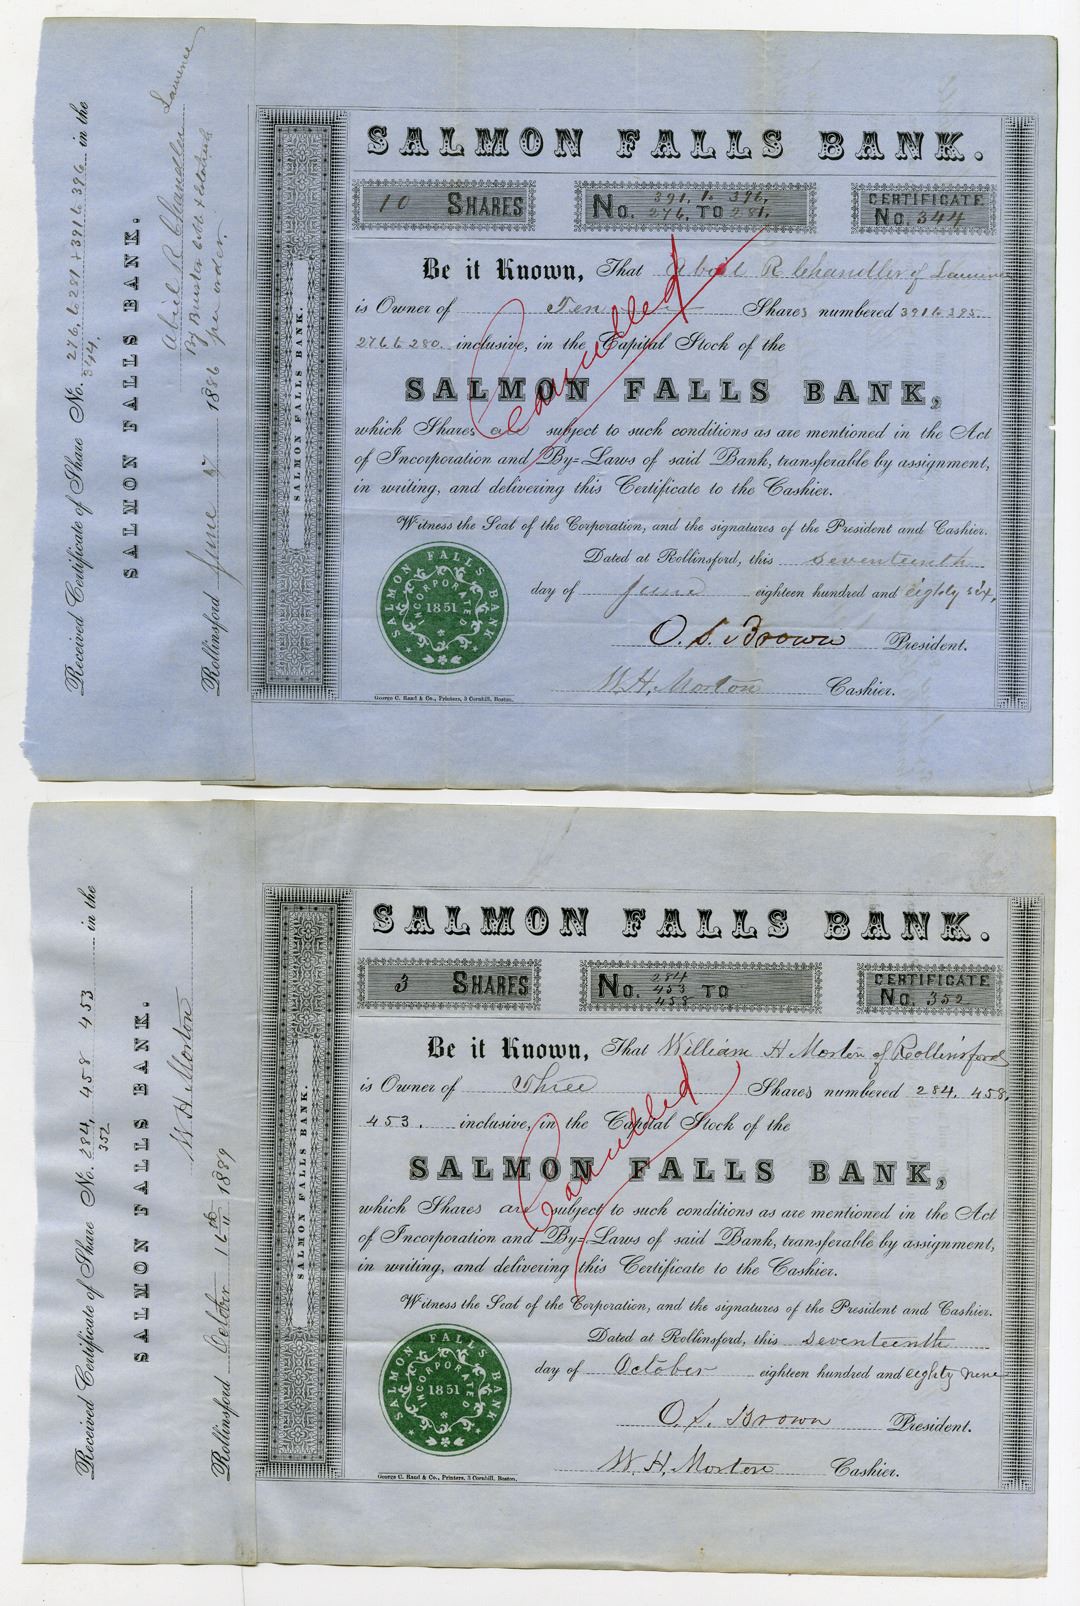 SALMON FALLS BANK.
10 SHARES
No. 391 to 396. 276. TO 281.
CERTIFICATE No. 344
Be it Known, That Abiel R Chandler of Lawrence
is Owner of Ten Shares numbered 391 to 395.
276 to 280. inclusive, in the Capital Stock of the
SALMON FALLS BANK,
which Shares are subject to such conditions as are mentioned in the Act
of Incorporation and By-Laws of said Bank, transferable by assignment,
in writing, and delivering this Certificate to the Cashier.
Witness the Seal of the Corporation, and the signatures of the President and Cashier.
Dated at Rollinsford, this seventeenth
day of June eighteen hundred and eighty six,
O. S. Brown President.
W. H. Morton Cashier.
George C. Rand & Co., Printers, 3 Cornhill, Boston.
Cancelled
SALMON FALLS BANK INCORPORATED 1851
SALMON FALLS BANK.
Received Certificate of Share No. 276 to 281 & 391 to 396 in the
344.
SALMON FALLS BANK.
Abiel R Chandler Lawrence
per order.
Rollinsford June 17 1886
SALMON FALLS BANK.
3 SHARES
No. 284 453 458 TO
CERTIFICATE No. 352
Be it Known, That William H Morton of Rollinsford
is Owner of Three Shares numbered 284. 458,
453. inclusive, in the Capital Stock of the
SALMON FALLS BANK,
which Shares are subject to such conditions as are mentioned in the Act
of Incorporation and By-Laws of said Bank, transferable by assignment,
in writing, and delivering this Certificate to the Cashier.
Witness the Seal of the Corporation, and the signatures of the President and Cashier.
Dated at Rollinsford, this seventeenth
day of October eighteen hundred and eighty nine
O. S. Brown President.
W. H. Morton Cashier.
George C. Rand & Co., Printers, 3 Cornhill, Boston.
Cancelled
SALMON FALLS BANK INCORPORATED 1851
SALMON FALLS BANK.
Received Certificate of Share No. 284, 458 453 in the
352
SALMON FALLS BANK.
W H Morton
Rollinsford October 16th 1889